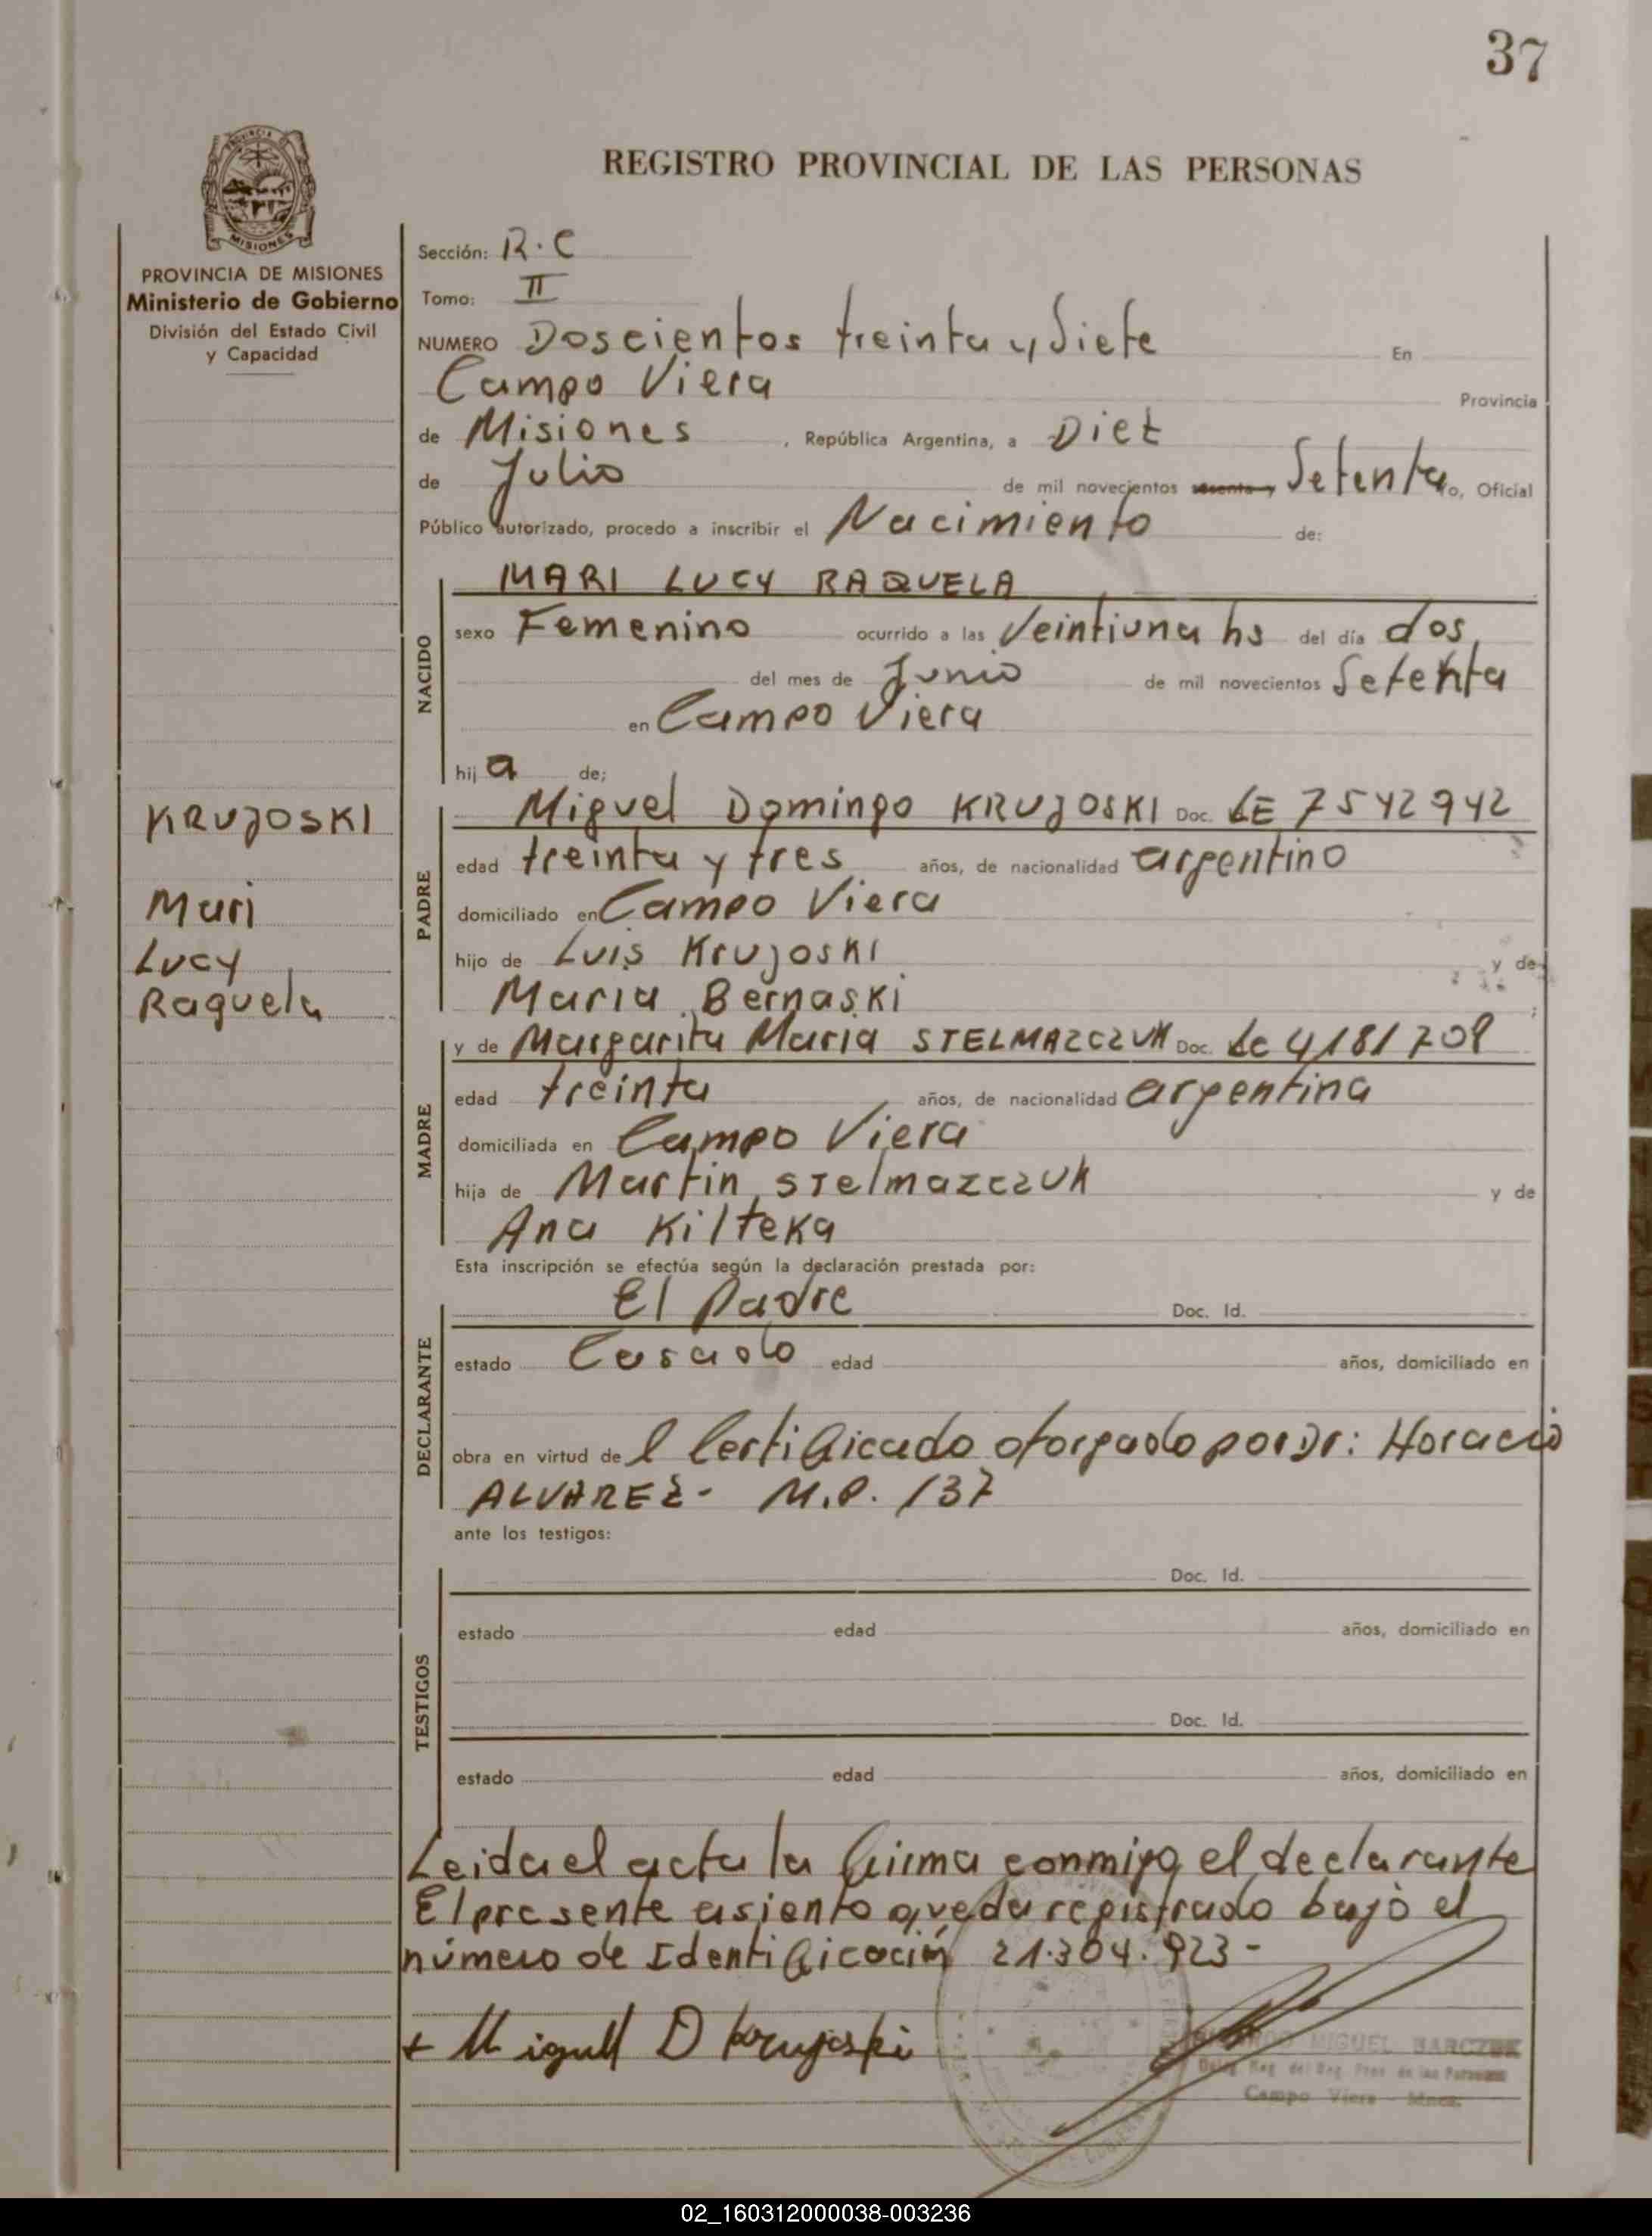 37
REGISTRO PROVINCIAL DE LAS PERSONAS
PROVINCIA DE MISIONES
Ministerio de Gobierno
División del Estado Civil
y Capacidad
Sección: R.C
Tomo: II
NUMERO Doscientos treinta y Siete En
Campo Viera Provincia
de Misiones, República Argentina, a Diez
de Julio de mil novecientos sesenta y Setenta, Oficial
Público autorizado, procedo a inscribir el Nacimiento de:
NACIDO
MARI LUCY RAQUELA
sexo Femenino ocurrido a las Veintiuna hs del día dos
del mes de Junio de mil novecientos Setenta
en Campo Viera
hija de;
KRUJOSKI
Mari
Lucy
Raquela
PADRE
Miguel Domingo KRUJOSKI Doc. LE 7542942
edad treinta y tres años, de nacionalidad argentino
domiciliado en Campo Viera
hijo de Luis Krujoski y de
Maria Bernaski
MADRE
y de Margarita Maria STELMAZCZUK Doc. Lc 4181709
edad treinta años, de nacionalidad argentina
domiciliada en Campo Viera
hija de Martin Stelmazczuk y de
Ana Kilteka
Esta inscripción se efectúa según la declaración prestada por:
DECLARANTE
El Padre Doc. Id.
estado Casado edad años, domiciliado en
obra en virtud del Certificado otorgado por Dr: Horacio
ALVAREZ- M.P. 137
ante los testigos:
TESTIGOS
Doc. Id.
estado edad años, domiciliado en
Doc. Id.
estado edad años, domiciliado en
Leida el acta la firma conmigo el declarante
El presente asiento queda registrado bajo el
número de Identificación 21.304.923-
+ Miguel D Krujoski
MIGUEL BARCZUK
Campo Viera - Mnes.
02_160312000038-003236